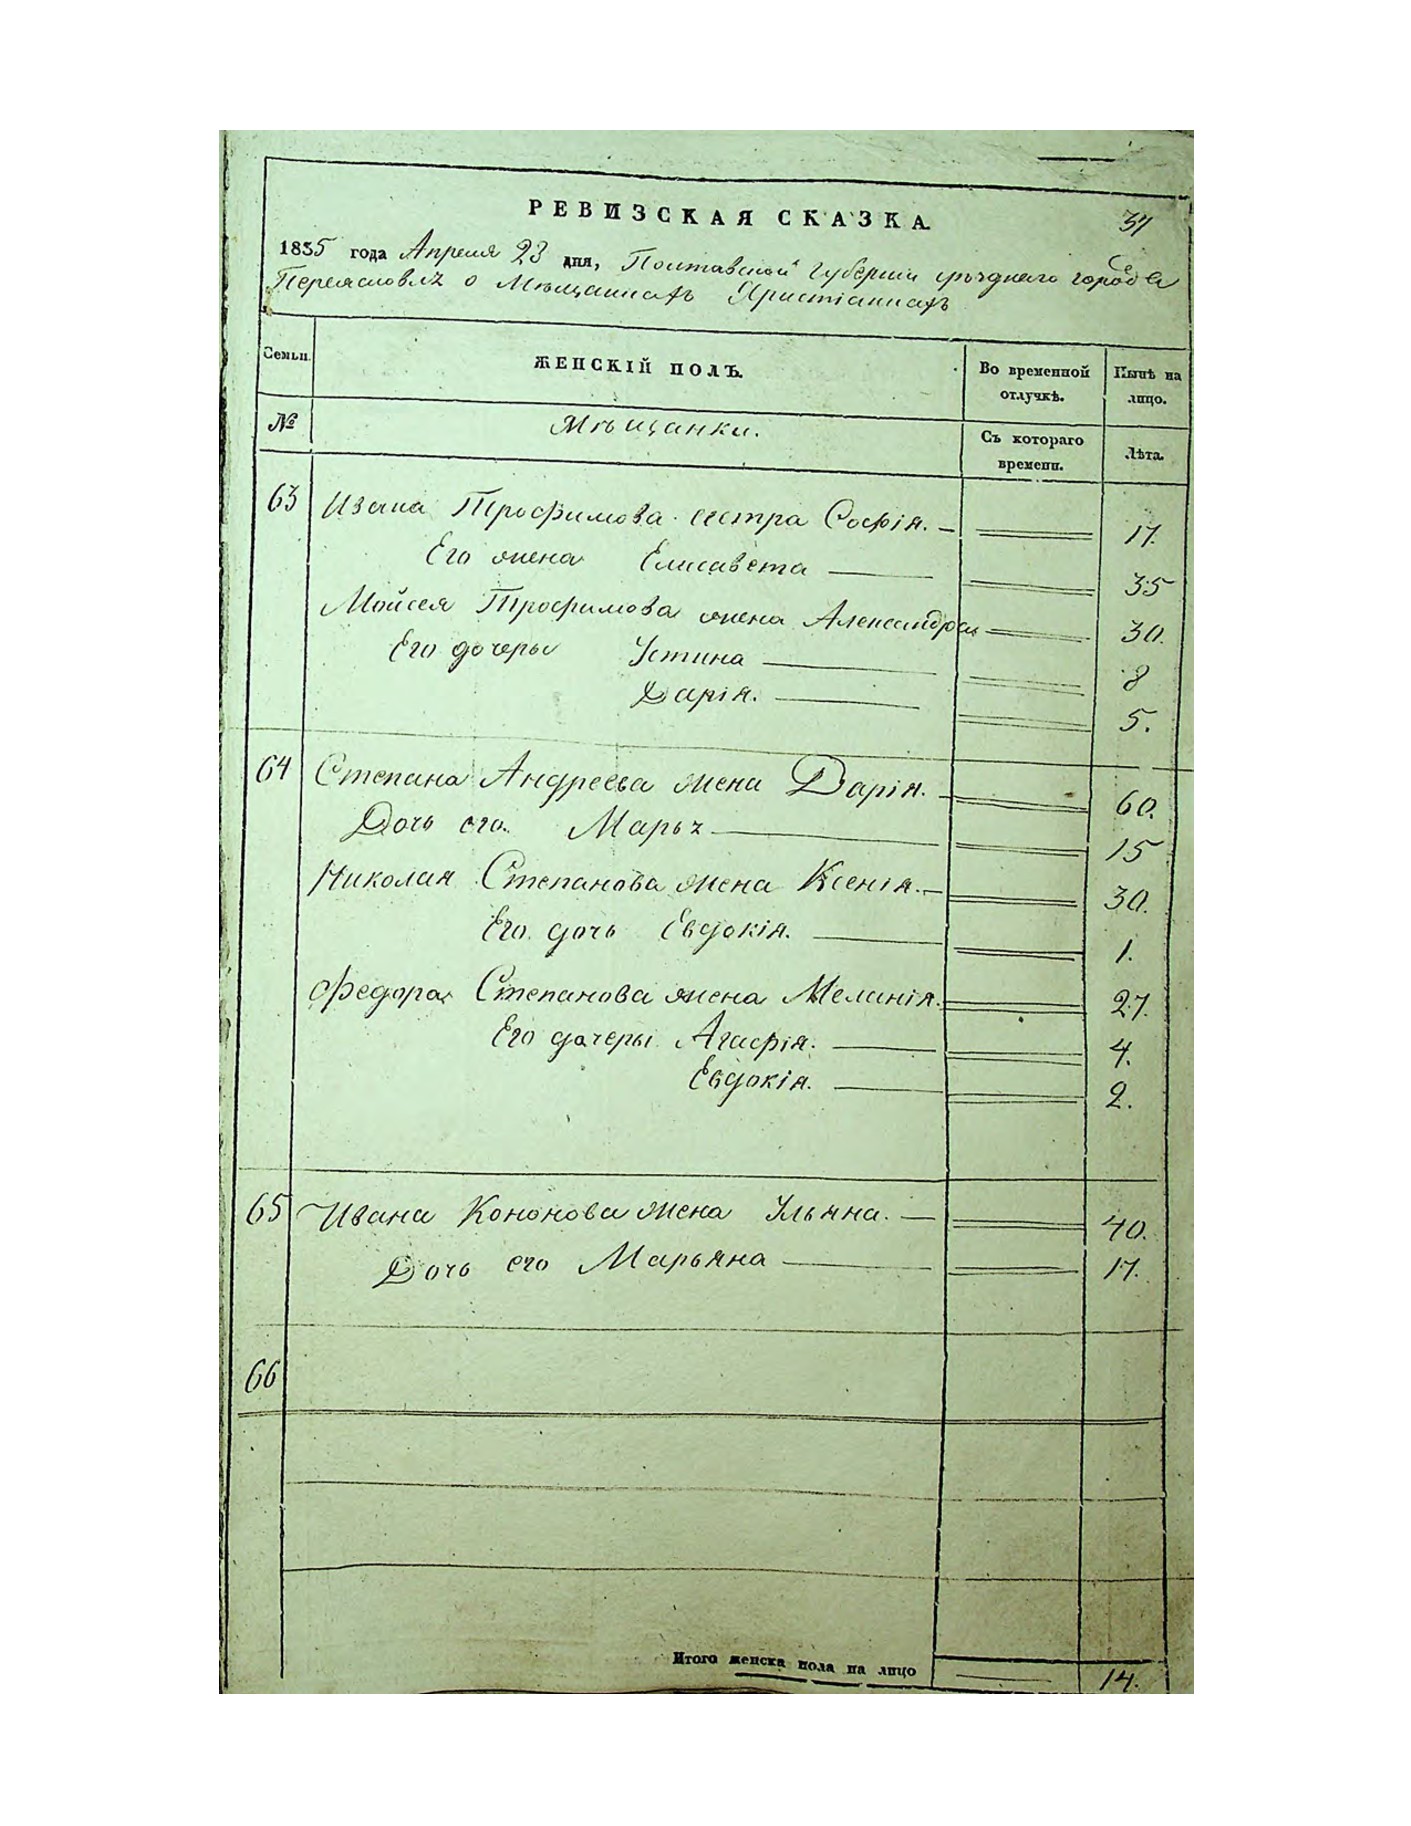 РЕВИЗСКАЯ СКАЗКА.
37
1835 года Апреля 23 дня, Полтавской Губернии уѣзднаго города
Переясловля о Мѣщанах Христіанах
Семьи.
ЖЕНСКІЙ ПОЛЪ.
Во временной отлучкѣ.
Нынѣ на лицо.
№
Мѣщанки.
Съ котораго времени.
Лѣта.
63 Ивана Трофимова сестра Софія. 17.
Его жена Елисавета 35
Мойсея Трофимова жена Александра 30.
Его дочеры Устина 8
Дарія. 5.
64 Степана Андреева жена Дарія. 60.
Дочь его. Марья 15
Николая Степанова жена Ксенія. 30.
Его дочь Евдокія. 1.
Федора Степанова жена Меланія. 27.
Его дочеры Агафія. 4.
Евдокія. 2.
65 Ивана Кононова жена Ульяна. 40.
Дочь его Марьяна 17.
66
Итого женска пола на лицо 14.